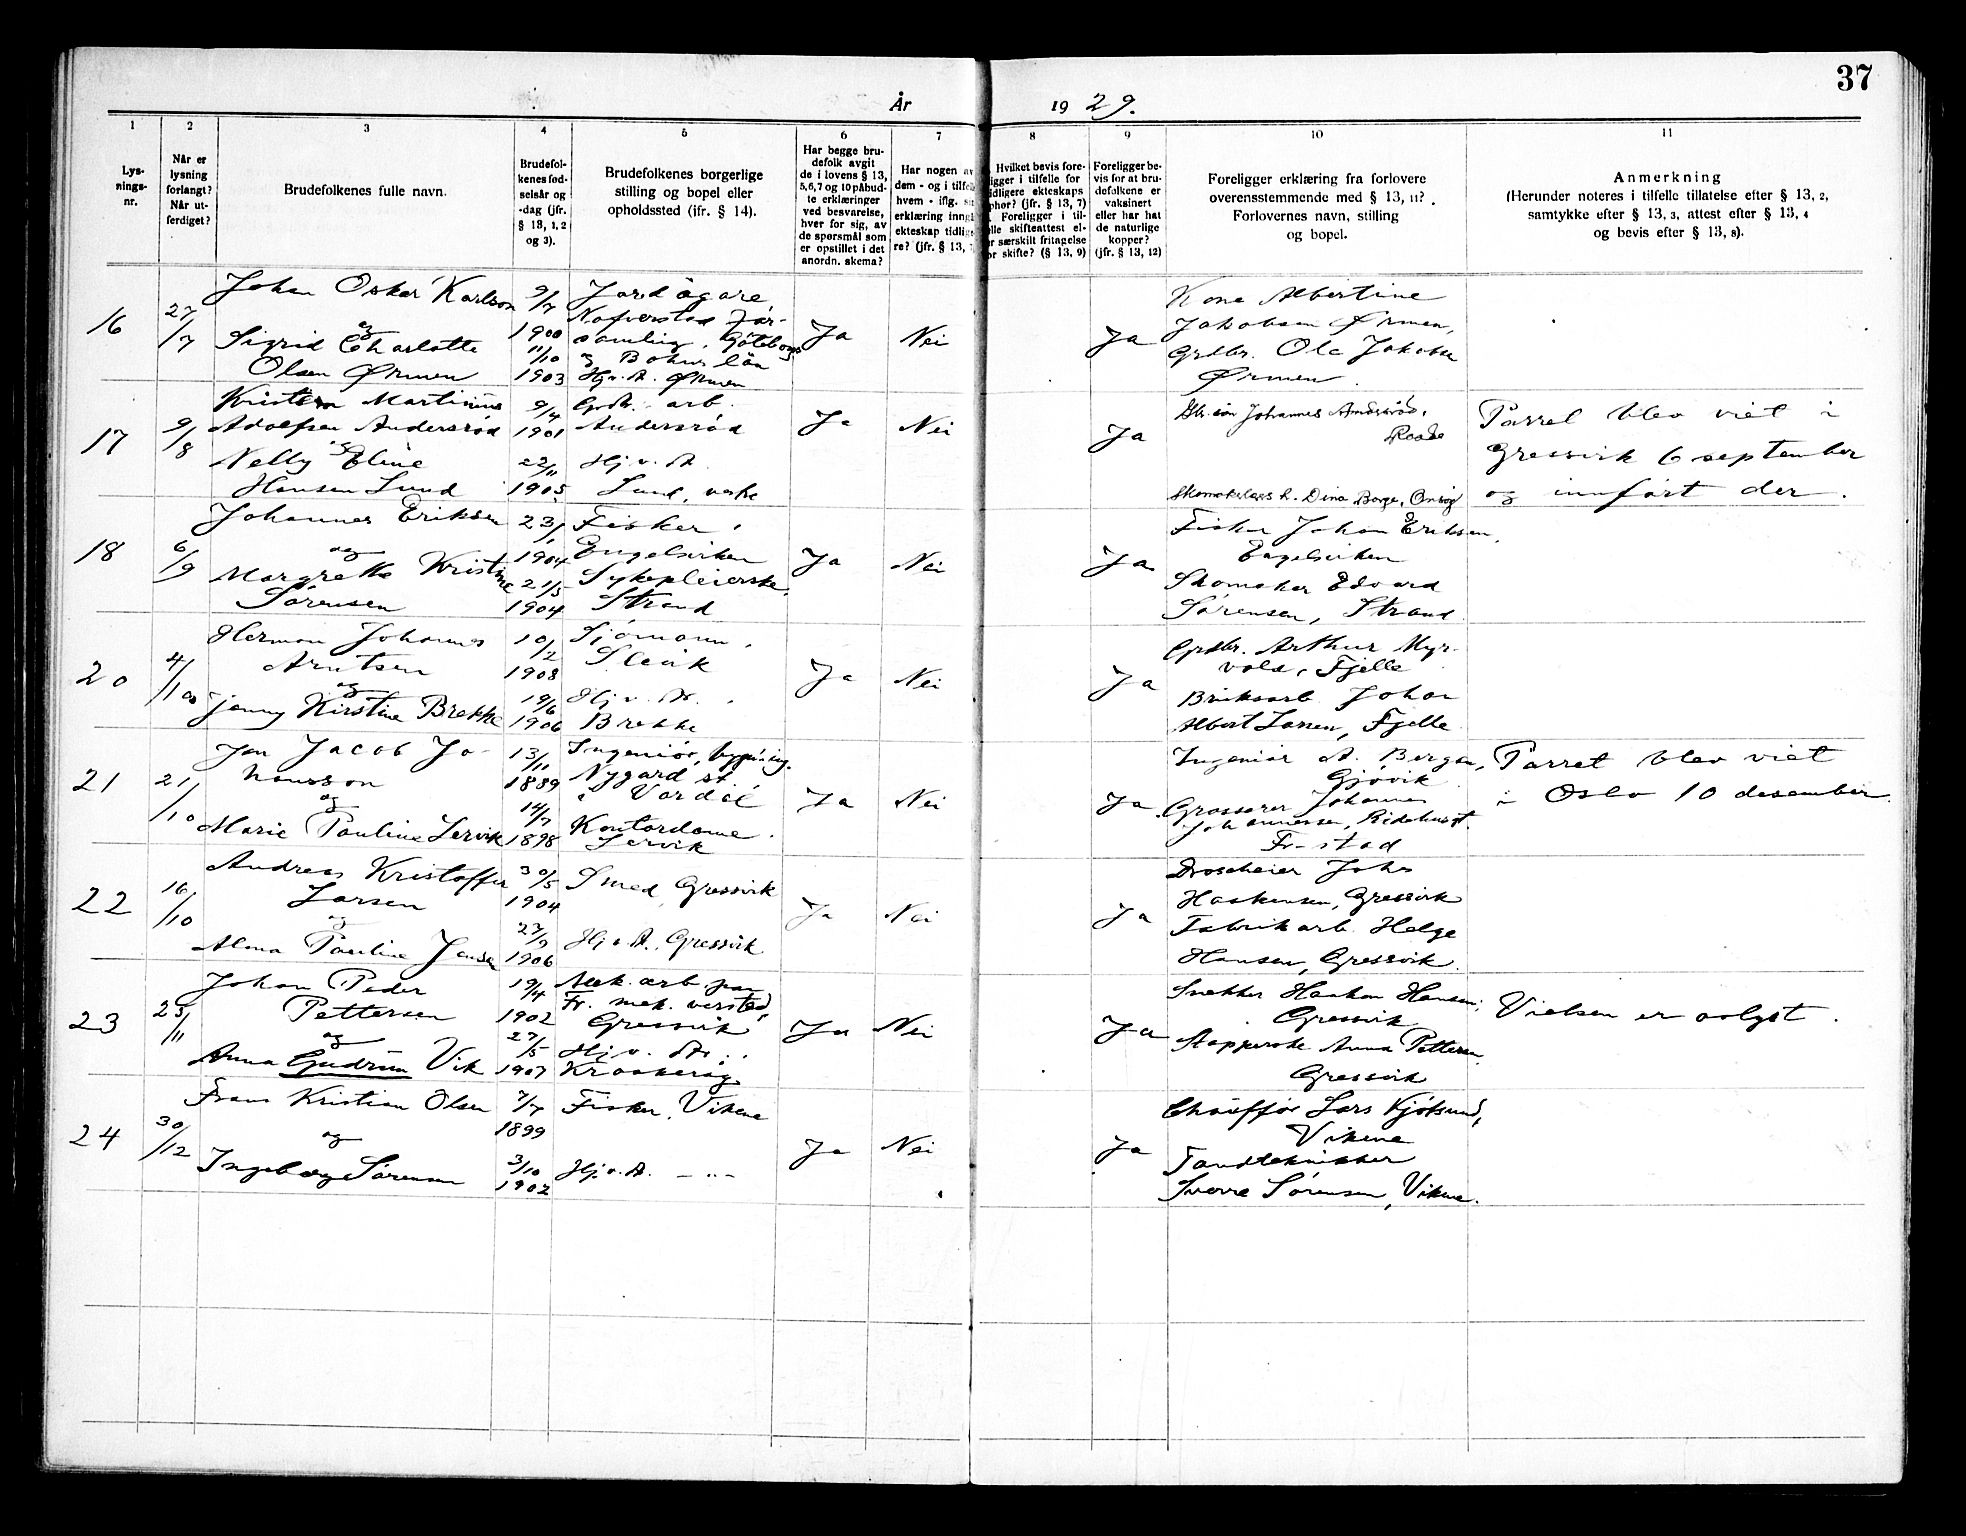 37
År 1929.
1
2
3
4
5
6
7
8
9
10
11
Lys-
nings-
nr.
Når er
lysning
forlangt?
Når ut-
ferdiget?
Brudefolkenes fulle navn.
Brudefol-
kenes fød-
selsår og
-dag (jfr.
§ 13, 1, 2
og 3).
Brudefolkenes borgerlige
stilling og bopel eller
opholdssted (ifr. § 14).
Har begge bru-
defolk avgit
de i lovens § 13,
5,6,7 og 10 påbud-
te erklæringer
ved besvarelse,
hver for sig, av
de spørsmål som
er opstillet i det
anordn. skema?
Har nogen av
dem - og i tilfelle
hvem - iflg.
erklæring inngått
ekteskap tidlige-
re? (jfr. § 13,
Hvilket bevis fore-
ligger i tilfelle for
tidligere ekteskaps
ophør? (jfr. § 13, 7)
Foreligger i til-
felle skifteattest el-
er særskilt fritagelse
for skifte? (§ 13, 9)
Foreligger be-
vis for at bru-
defolkene er
vaksinert
eller har hat
de naturlige
kopper?
(jfr. § 13, 12)
Foreligger erklæring fra forlovere
overensstemmende med § 13, 11?
Forlovernes navn, stilling
og bopel.
Anmerkning
(Herunder noteres i tilfelle tillatelse efter § 13, 2,
samtykke efter § 13, 3, attest efter § 13, 4
og bevis efter § 13, 8).
16
27/7
Johan Oskar Karlsson
og
Sigrid Charlotte
Olsen Ørmen
9/7
1900
11/10
1903
Jordägare,
Nafverstad för-
samling, Göteborgs
og Bohus län
Hj.v.d. Ørmen
Ja
Nei
Ja
Kone Albertine
Jakobsen Ørmen,
Grdbr. Ole Jakobsen
Ørmen.
17
9/8
Kristen Martinius
Adolfsen Andersrød
og
Nelly Eline
Hansen Lund
9/4
1901
22/11
1905
Grdb. arb.
Andersrød
Hj. v. d.
Lund,
Ja
Nei
Ja
Johannes
Raade
Skomakers h. Dina Borge, Onsøy
Parret blev viet i
Gressvik 6 september
og innført der.
18
6/9
Johannes Eriksen
og
Margrethe Kristine
Sørensen
23/1
1904
21/5
1904
Fisker,
Engelsviken
Sykepleierske,
Strand
Ja
Nei
Ja
Fisker Johan Eriksen,
Engelsviken
Skomaker Edvard
Sørensen, Strand
20
4/10
Herman Johannes
Arntsen
og
Jenny Kirstine Brekke
10/2
1908
19/6
1906
Sjømann,
Slevik
Hj. v. d.,
Brekke
Ja
Nei
Ja
Grdbr. Arthur Myr-
vold, Fjelle
Bruksarb Johan
Albert Larsen, Fjelle
21
21/10
Jon Jacob Jo-
hansson
og
Marie Pauline Lervik
13/11
1889
14/7
1898
Ingeniør,
Nygard st
i Vardal
Kontordame
Lervik
Ja
Nei
Ja
Ingeniør A. Bergan,
Gjøvik
Grosserer Johannes
Johannessen, Ridehusgt.
Fr-stad
Parret blev viet
i Oslo 10 desember.
22
16/10
Andreas Kristoffer
Larsen
og
Alma Pauline Jensen
30/5
1904
27/9
1906
Smed, Gressvik
Hj.v.d., Gressvik
Ja
Nei
Ja
Droscheier John
Haakensen, Gressvik
Fabrikarb. Helge
Hansen, Gressvik.
23
25/11
Johan Peder
Pettersen
og
Anna Gudrun Vik
19/4
1902
27/5
1907
Mek. arb. paa
Fr. mek. versted,
Gressvik
Hj. v. d.,
Kraakerøy
Ja
Nei
Ja
Snekker Haakon Hansen,
Gressvik
Stopperske Anna Pettersen
Gressvik
Vielsen er avlyst.
24
30/12
Frans Kristian Olsen
og
Ingeborg Sørensen
7/7
1899
3/10
1902
Fisker, Vikene
Hj.v.d. — „ —
Ja
Nei
Ja
Chauffør Lars Kjølsund,
Vikene
Tandtekniker
Sverre Sørensen, Vikene.